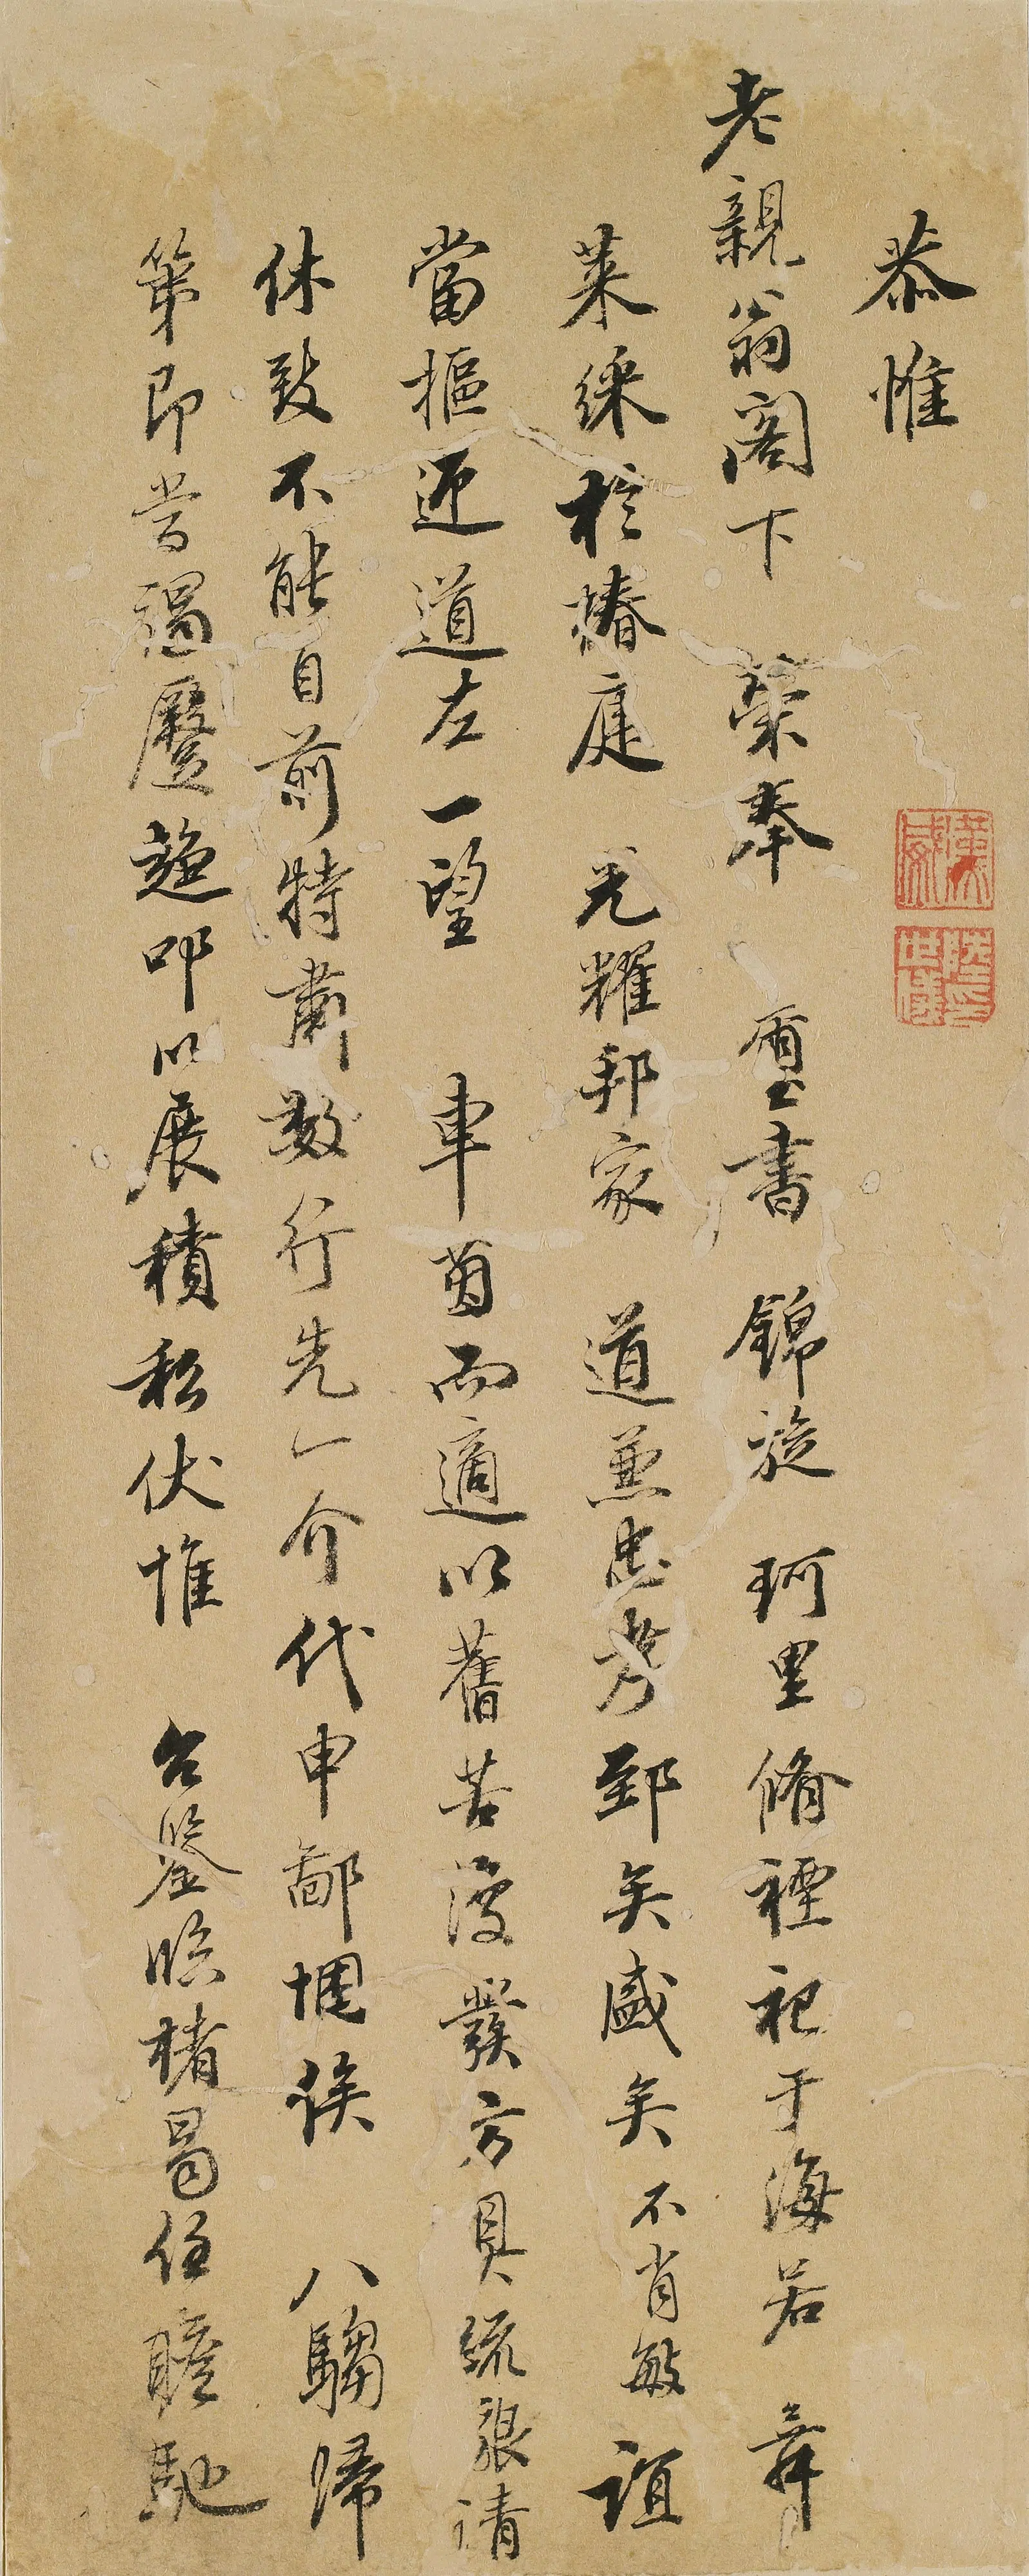 恭惟
老親翁閣下榮奉璽書錦旋珂里脩禋祀于海若舞
萊綵於椿庭光耀邦家道兼忠孝郅矣盛矣不肖敏誼
當摳迎道左一望車茵而適以舊苦復發方具疏懇請
休致不能自前特肅數行先一介代申鄙悃俟八騶歸
第即當過廬趨叩以展積私伏惟台鑒臨楮曷任瞻馳